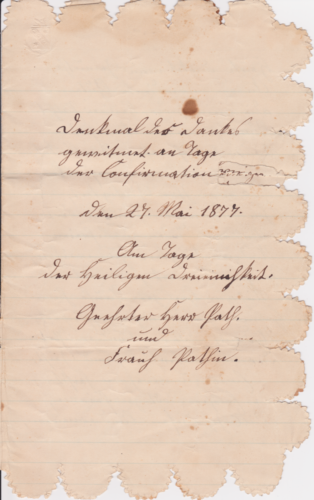 Denkmal des Dankes
gewitmet an Tage
der Confirmation
den 27. Mai 1877.
Am Tage
der Heiligen Dreieinigkeit.
Geehrter Herr Path.
und
Frauh Pathin.